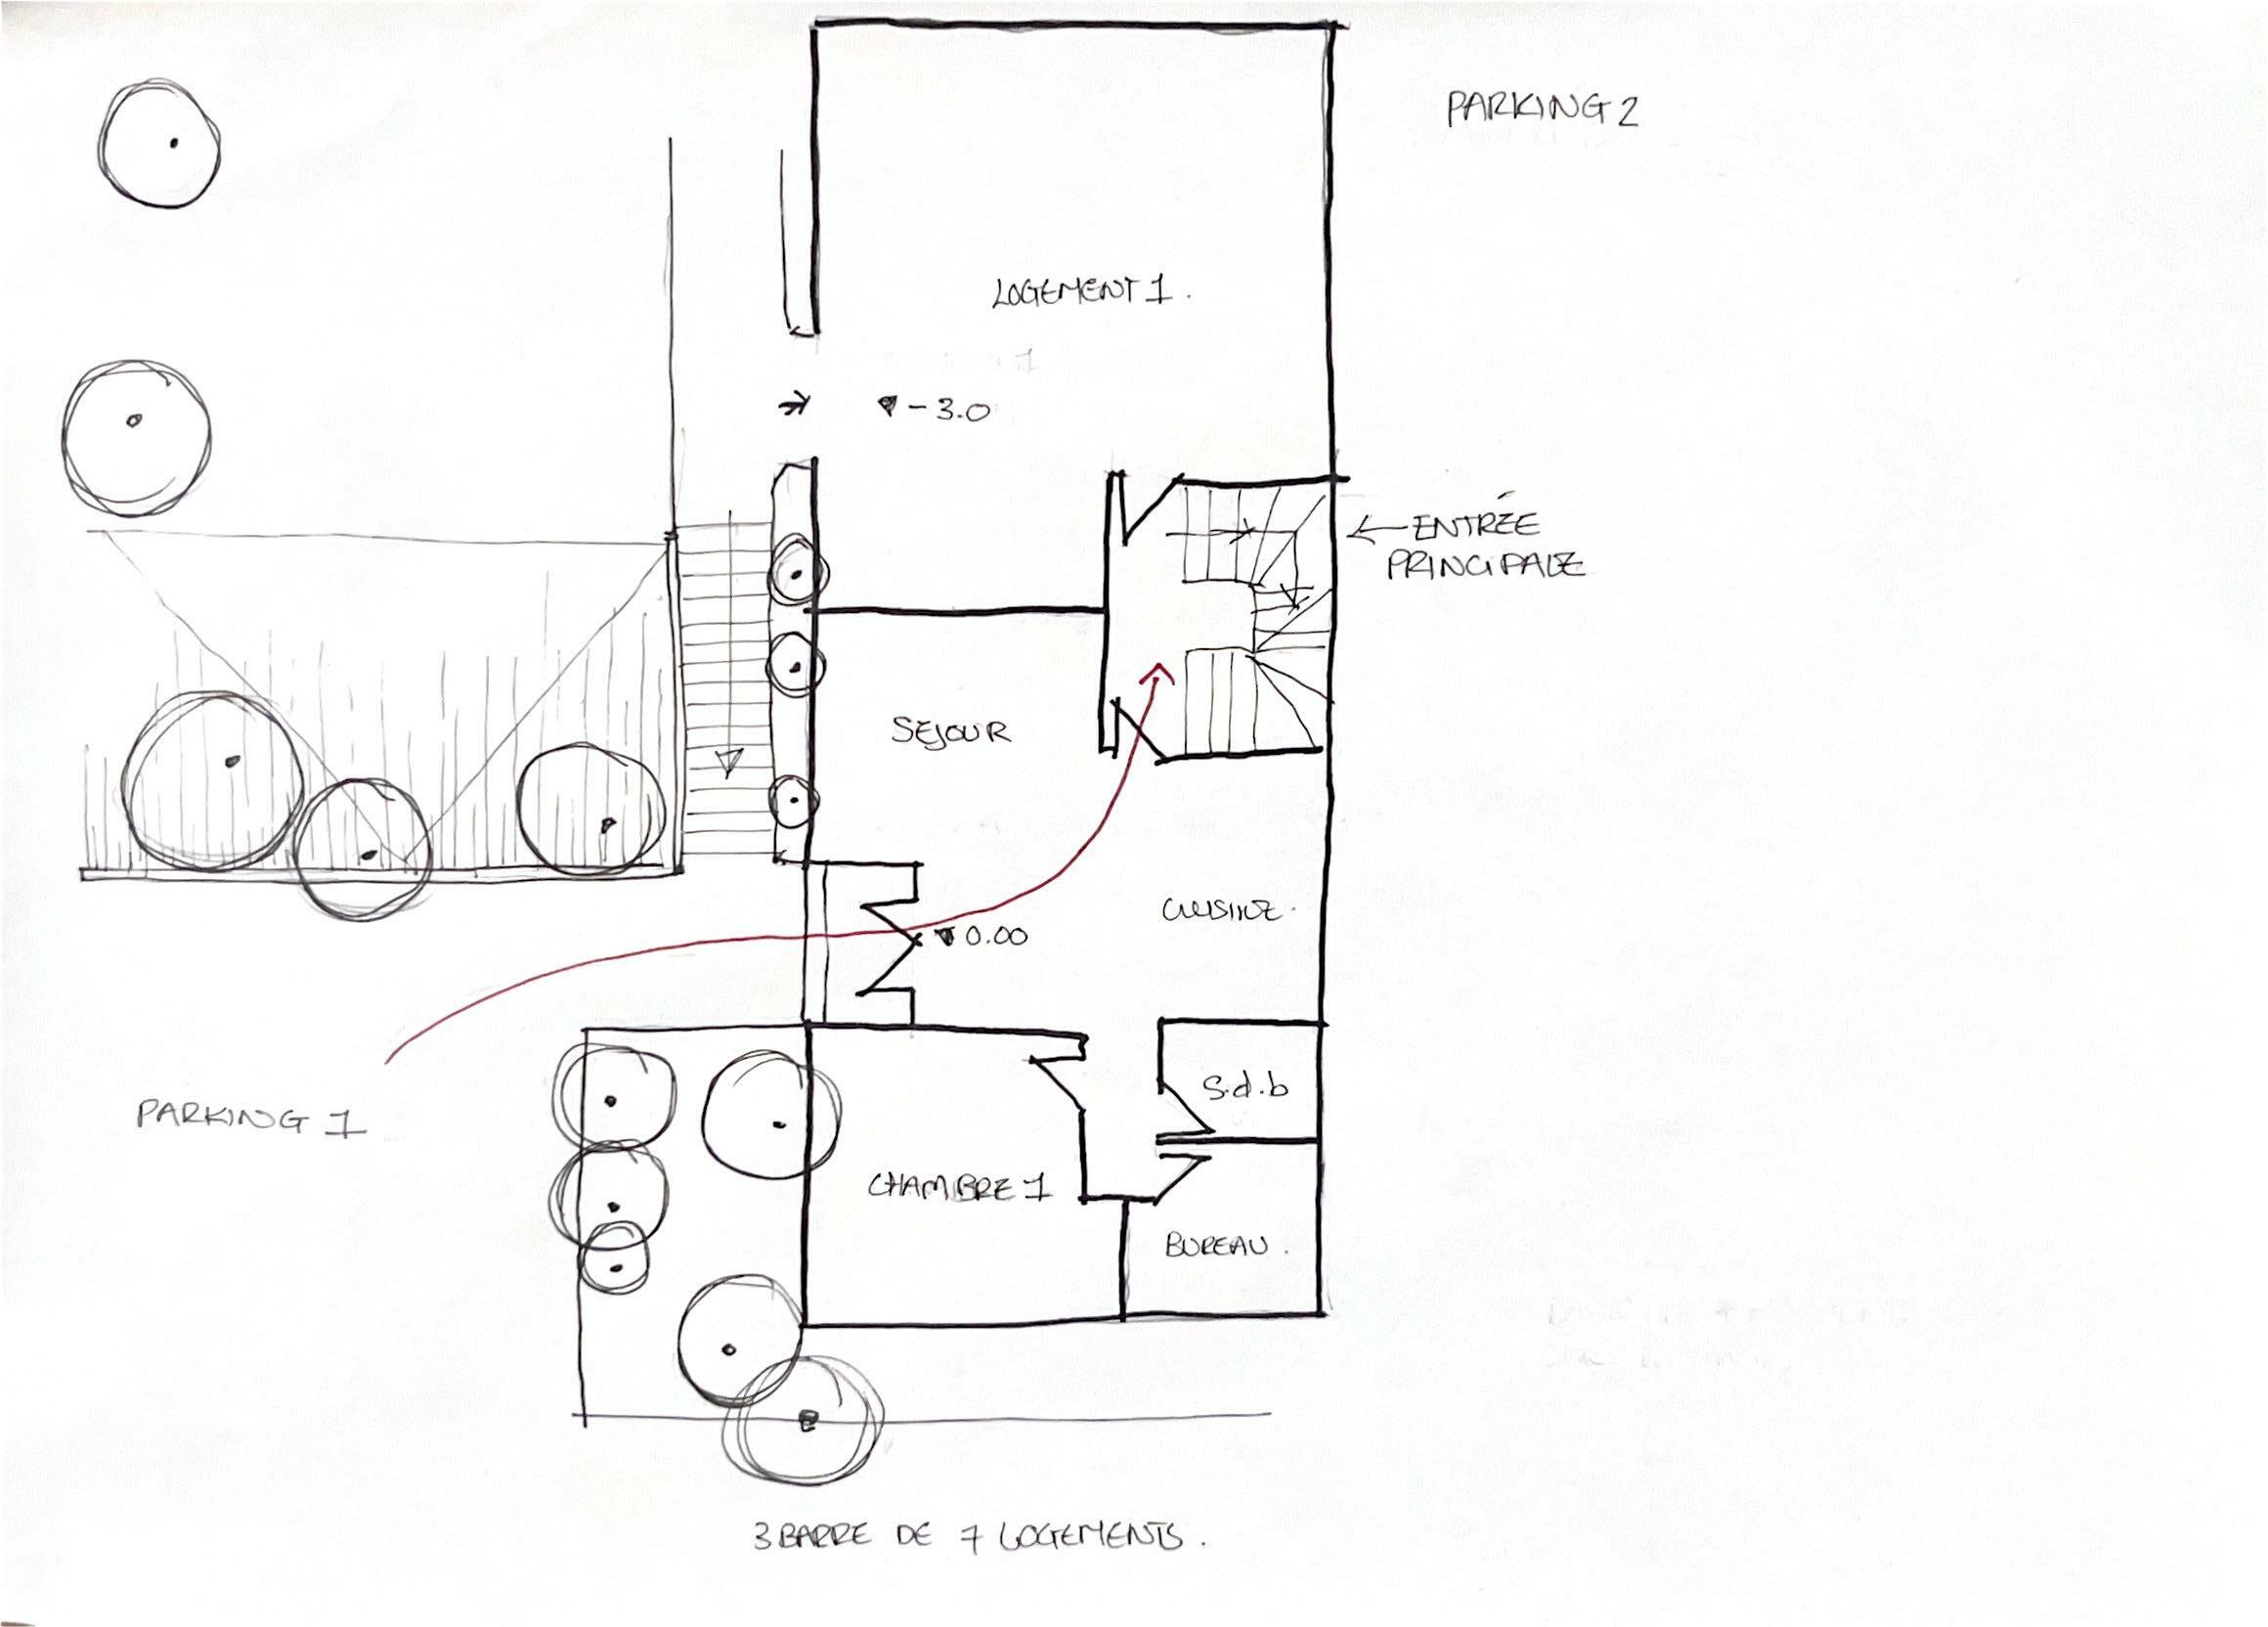 PARKING 2
LOGEMENT 1.
-3.0
ENTRÉE
PRINCIPALE
SEJOUR
CUISINE.
0.00
S.d.b
PARKING 1
CHAMBRE 1
BUREAU.
3 BARRE DE 7 LOGEMENTS.